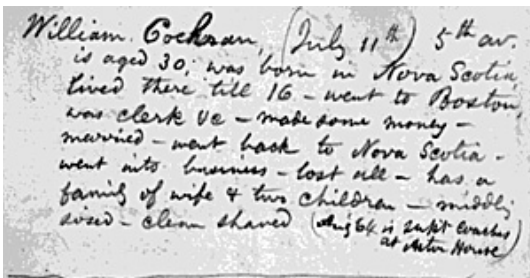 William Cochran, (July 11th) 5th av.
is aged 30; was born in Nova Scotia
lived there till 16 – went to Boston,
was clerk &c – made some money –
married – went back to Nova Scotia –
went into business – lost all – has a
family of wife & two children – middly
sised – clean shaved (Aug 64 is supt coaches
at Astor House)